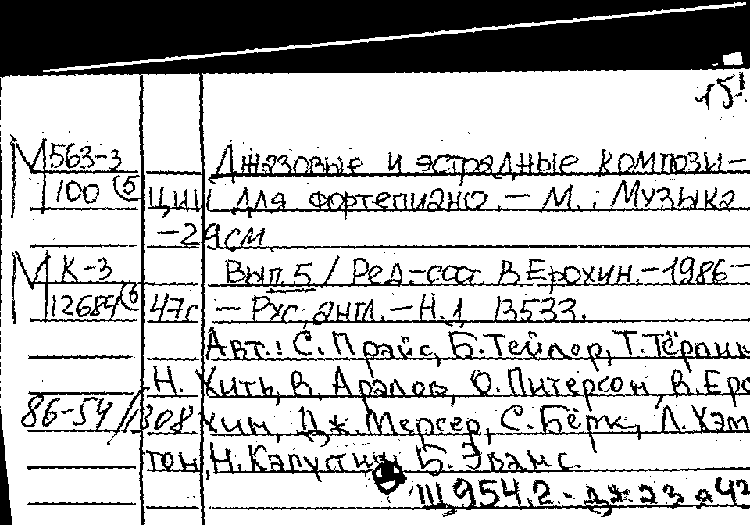 15
М 563-3 Джазовые и эстрадные компози-
100 (5 ции для фортепиано. – М.: Музыка
– 29см.
М К-3 Вып. 5 / Ред.-сост. В. Ерохин. – 1986 –
12684 (6 47с – Рус, англ. – Н. 1 13533.
Авт.: С. Прайс, Б. Тейлор, Т. Тёрпин
Н. Хить, В. Аралов, О. Питерсон, В. Еро
86-54/1308 хин, Дж. Мерсер, С. Бёрк, Л. Хэм
тон, Н. Капустин, Б. Эванс.
Щ954.2-